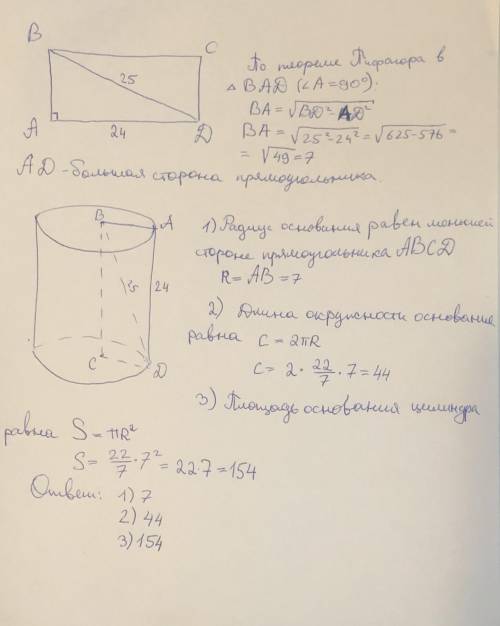 B
C
25
A
24
D
По теореме Пифагора в
△ BAD (∠A=90°).
BA = √BD²-AD²
BA = √25²-24² = √625-576 =
= √49 = 7
AD - большая сторона прямоугольника.
B
A
24
25
C
D
1) Радиус основания равен меньшей
стороне прямоугольника ABCD
R = AB = 7
2) Длина окружности основания
равна C = 2πR
C = 2 · 22/7 · 7 = 44
3) Площадь основания цилиндра
равна S = πR²
S = 22/7 · 7² = 22·7 = 154
Ответ: 1) 7
2) 44
3) 154